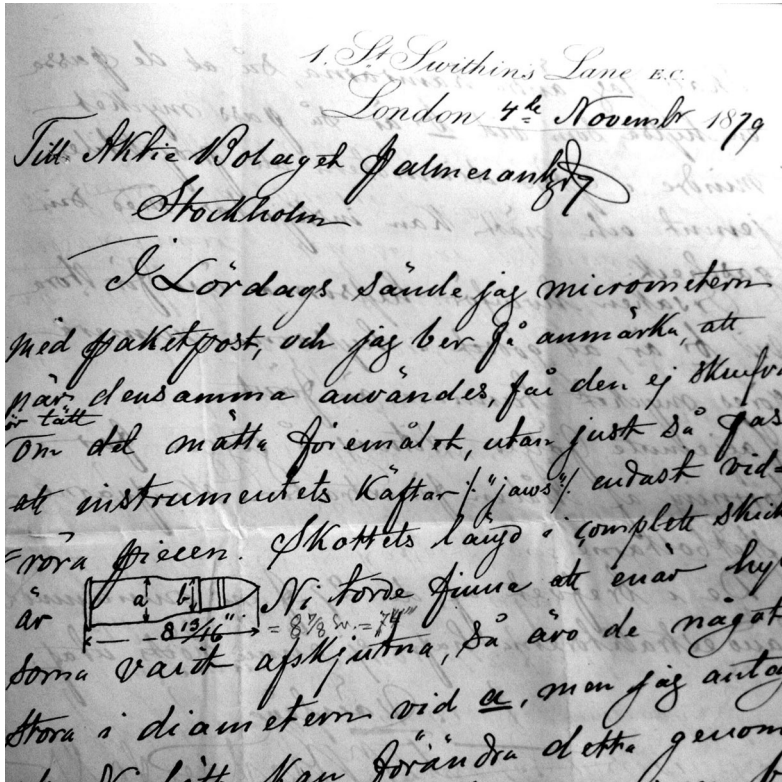 1. St Swithin's Lane E.C.
London 4de Novembr 1879
Till Aktie Bolaget Palmcrantz
Stockholm
I Lördags sände jag micrometern
med paketpost, och jag ber få anmärka, att
när densamma användes, får den ej skrufva
för tätt
om det mätta föremålet, utan just så pas
att instrumentets Käftar /: "jaws" :/ endast vid-
röra piecen. Skottets längd i complett skick
är a b Ni torde finna att enär hyl
8 13/16" = 8 7/8 Sv. = 74"'
sorna varit afskjutna, så äro de något
stora i diametern vid a, men jag antag
kan förändra detta genom